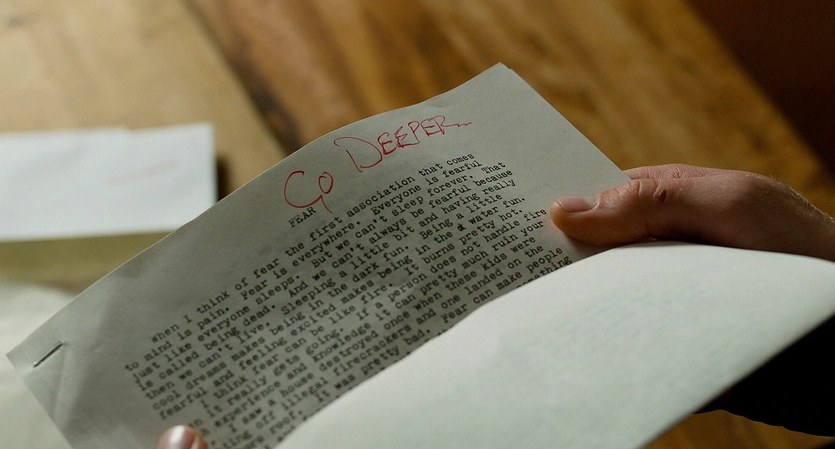 Go DEEPER...
FEAR
When I think of fear the first association that comes
to mind is pain. Fear is everywhere. Everyone is fearful
just like everyone sleeps. But we can't sleep forever. That
is called being dead. And we can't always be fearful because
then we can't live. Sleeping a little bit and having really
cool dreams makes being in the dark fun. Being a little
fearful and feeling excited makes being in the water fun.
I think fear can be like fire. It burns pretty hot.
it really gets going. If a person does not handle fire
experience and knowledge it can pretty much ruin your
I saw a house destroyed once when these kids were
ting off illegal firecrackers and one landed on the
roof. It was pretty bad. Fear can make people
something